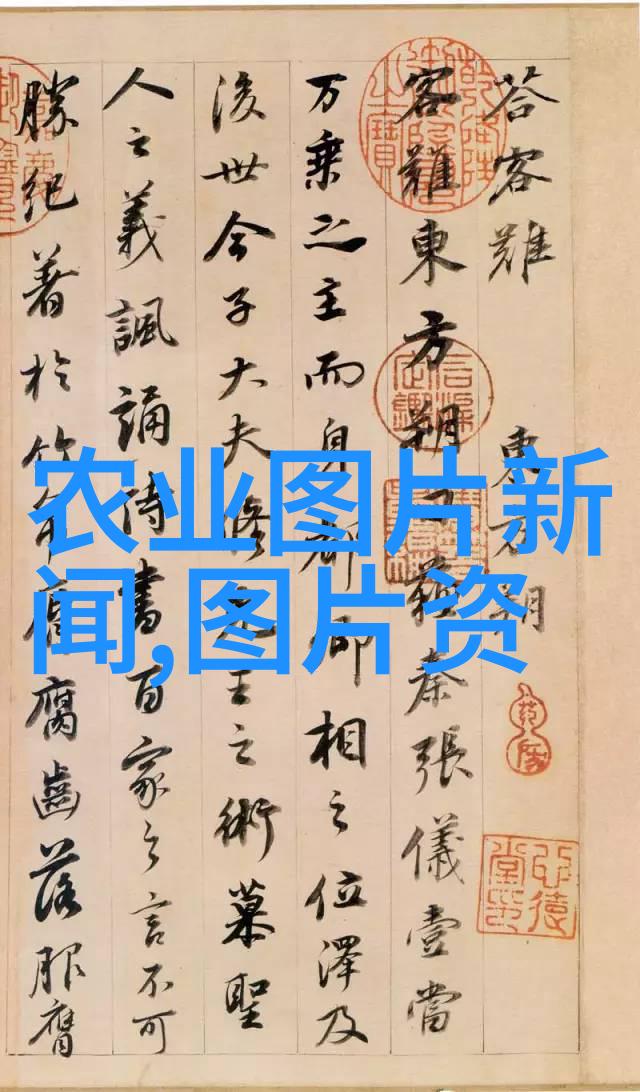 荅客難 東方朔
客難東方朔曰蘇秦張儀壹當
万乗之主而身都卿相之位澤及
後世今子大夫脩先王之術慕聖
人之義諷誦詩書百家之言不可
勝紀著於竹帛脣腐齒落服膺
农业图片新
闻,图片资